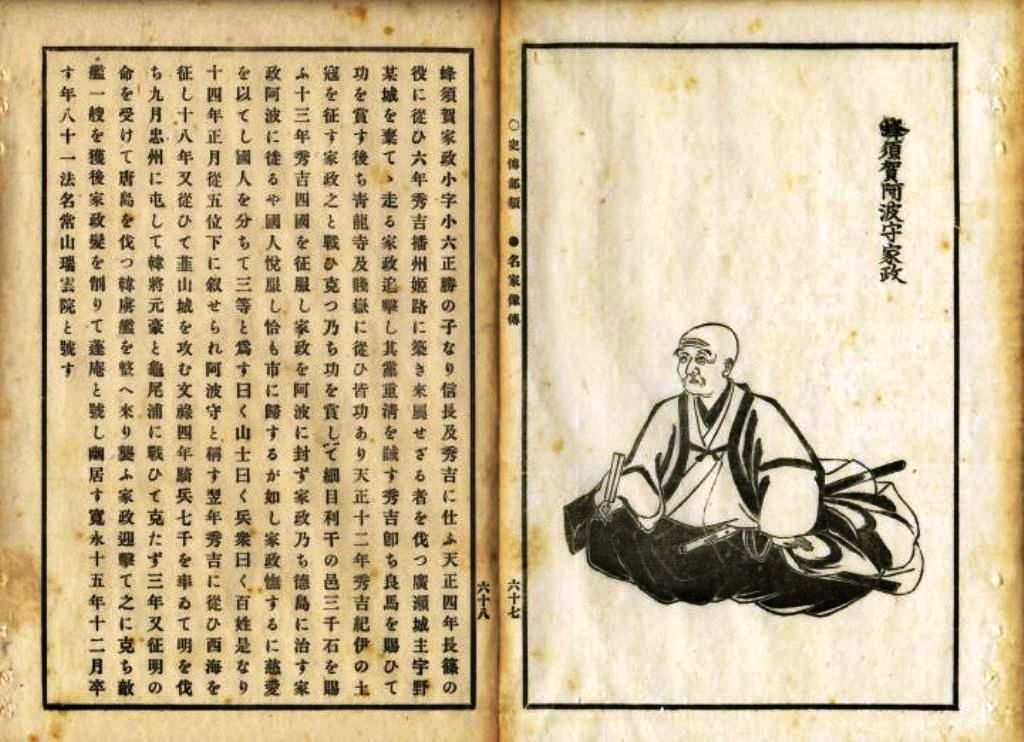 蜂須賀阿波守家政
○史傳部類 ●名家像傳 六十七
六十八
蜂須賀家政小字小六正勝の子なり信長及秀吉に仕ふ天正四年長篠の
役に從ひ六年秀吉播州姬路に築き來屬せざる者を伐つ廣瀨城主宇野
某城を棄てゝ走る家政追擊し其黨重淸を馘す秀吉卽ち良馬を賜ひて
功を賞す後ち靑龍寺及賤嶽に從ひ皆功あり天正十二年秀吉紀伊の土
寇を征す家政之と戰ひ克つ乃ち功を賞して細目利干の邑三千石を賜
ふ十三年秀吉四國を征服し家政を阿波に封ず家政乃ち德島に治す家
政阿波に徙るや國人悅服し恰も市に歸するが如し家政恤するに慈愛
を以てし國人を分ちて三等と爲す曰く山士曰く兵衆曰く百姓是なり
十四年正月從五位下に叙せられ阿波守と稱す翌年秀吉に從ひ西海を
征し十八年又從ひて韮山城を攻む文祿四年騎兵七千を率ゐて明を伐
ち九月忠州に屯して韓將元豪と龜尾浦に戰ひて克たず三年又征明の
命を受けて唐島を伐つ韓虜艦を整へ來り襲ふ家政迎擊て之に克ち敵
艦一艘を獲後家政髮を削りて蓬庵と號し幽居す寬永十五年十二月卒
す年八十一法名常山瑞雲院と號す